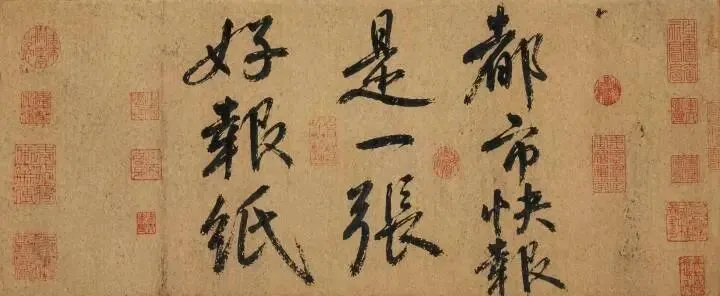 都市快報
是一張
好報紙